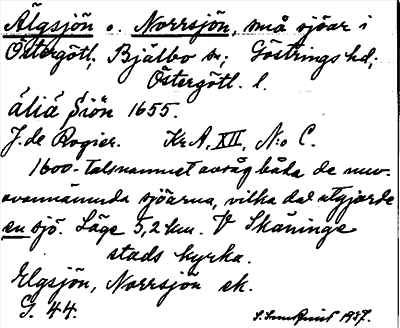 Älgsjön o. Norrsjön, små sjöar i
Östergötl., Bjälbo sn; Göstrings hd;
Östergötl. l.
äliä Siön 1655.
J. de Rogier. Kr. A, XII, N:o C.
1600-talsnamnet avsåg båda de nuv.
ovannämnda sjöarna, vilka då utgjorde
en sjö. Läge 5,2 km. V Skänninge
stads kyrka.
Elgsjön, Norrsjön ek.
G. 44.
1937.